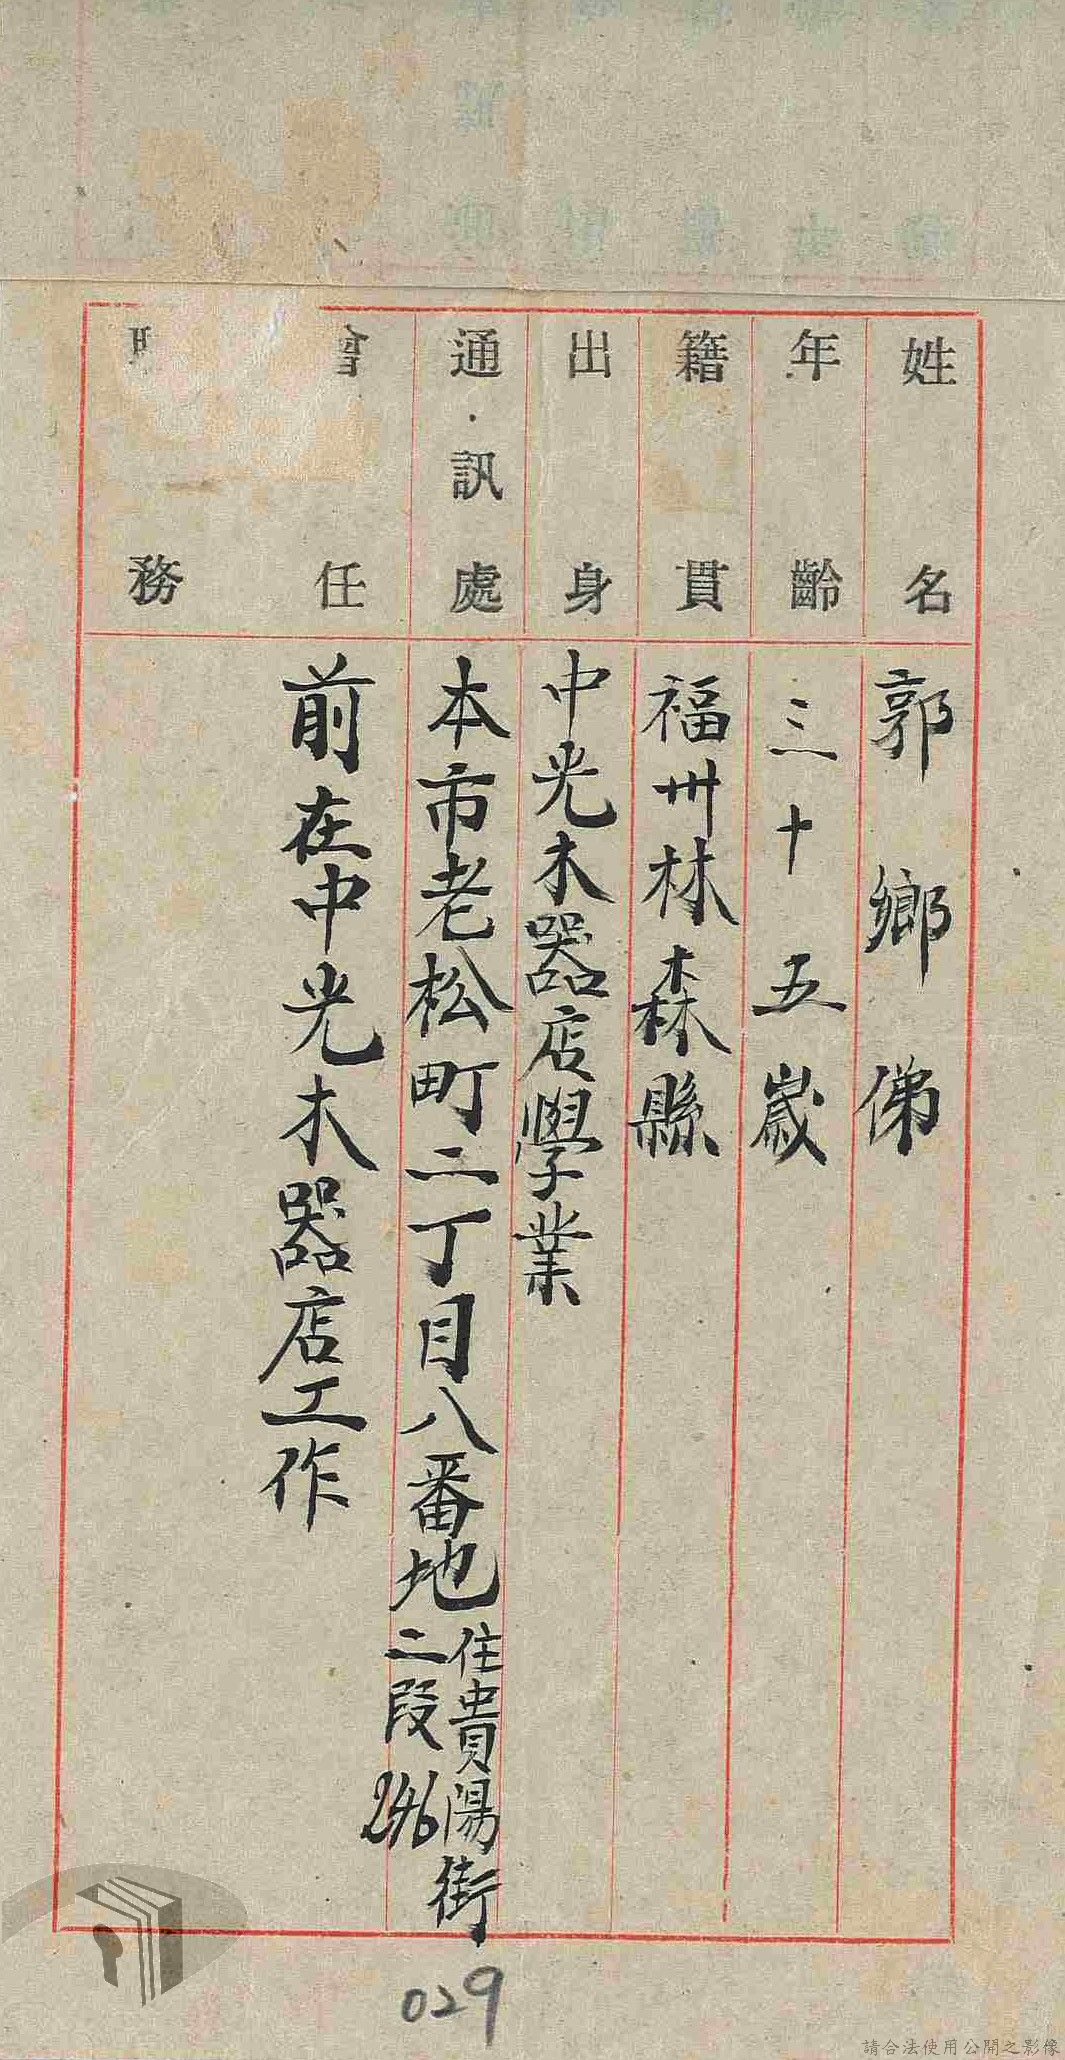 姓名 郭鄉俤
年齡 三十五歲
籍貫 福州林森縣
出身 中光木器店學業
通訊處 本市老松町二丁目八番地
住貴陽街
二段246
曾任 前在中光木器店工作
務
029
請合法使用公開之影像